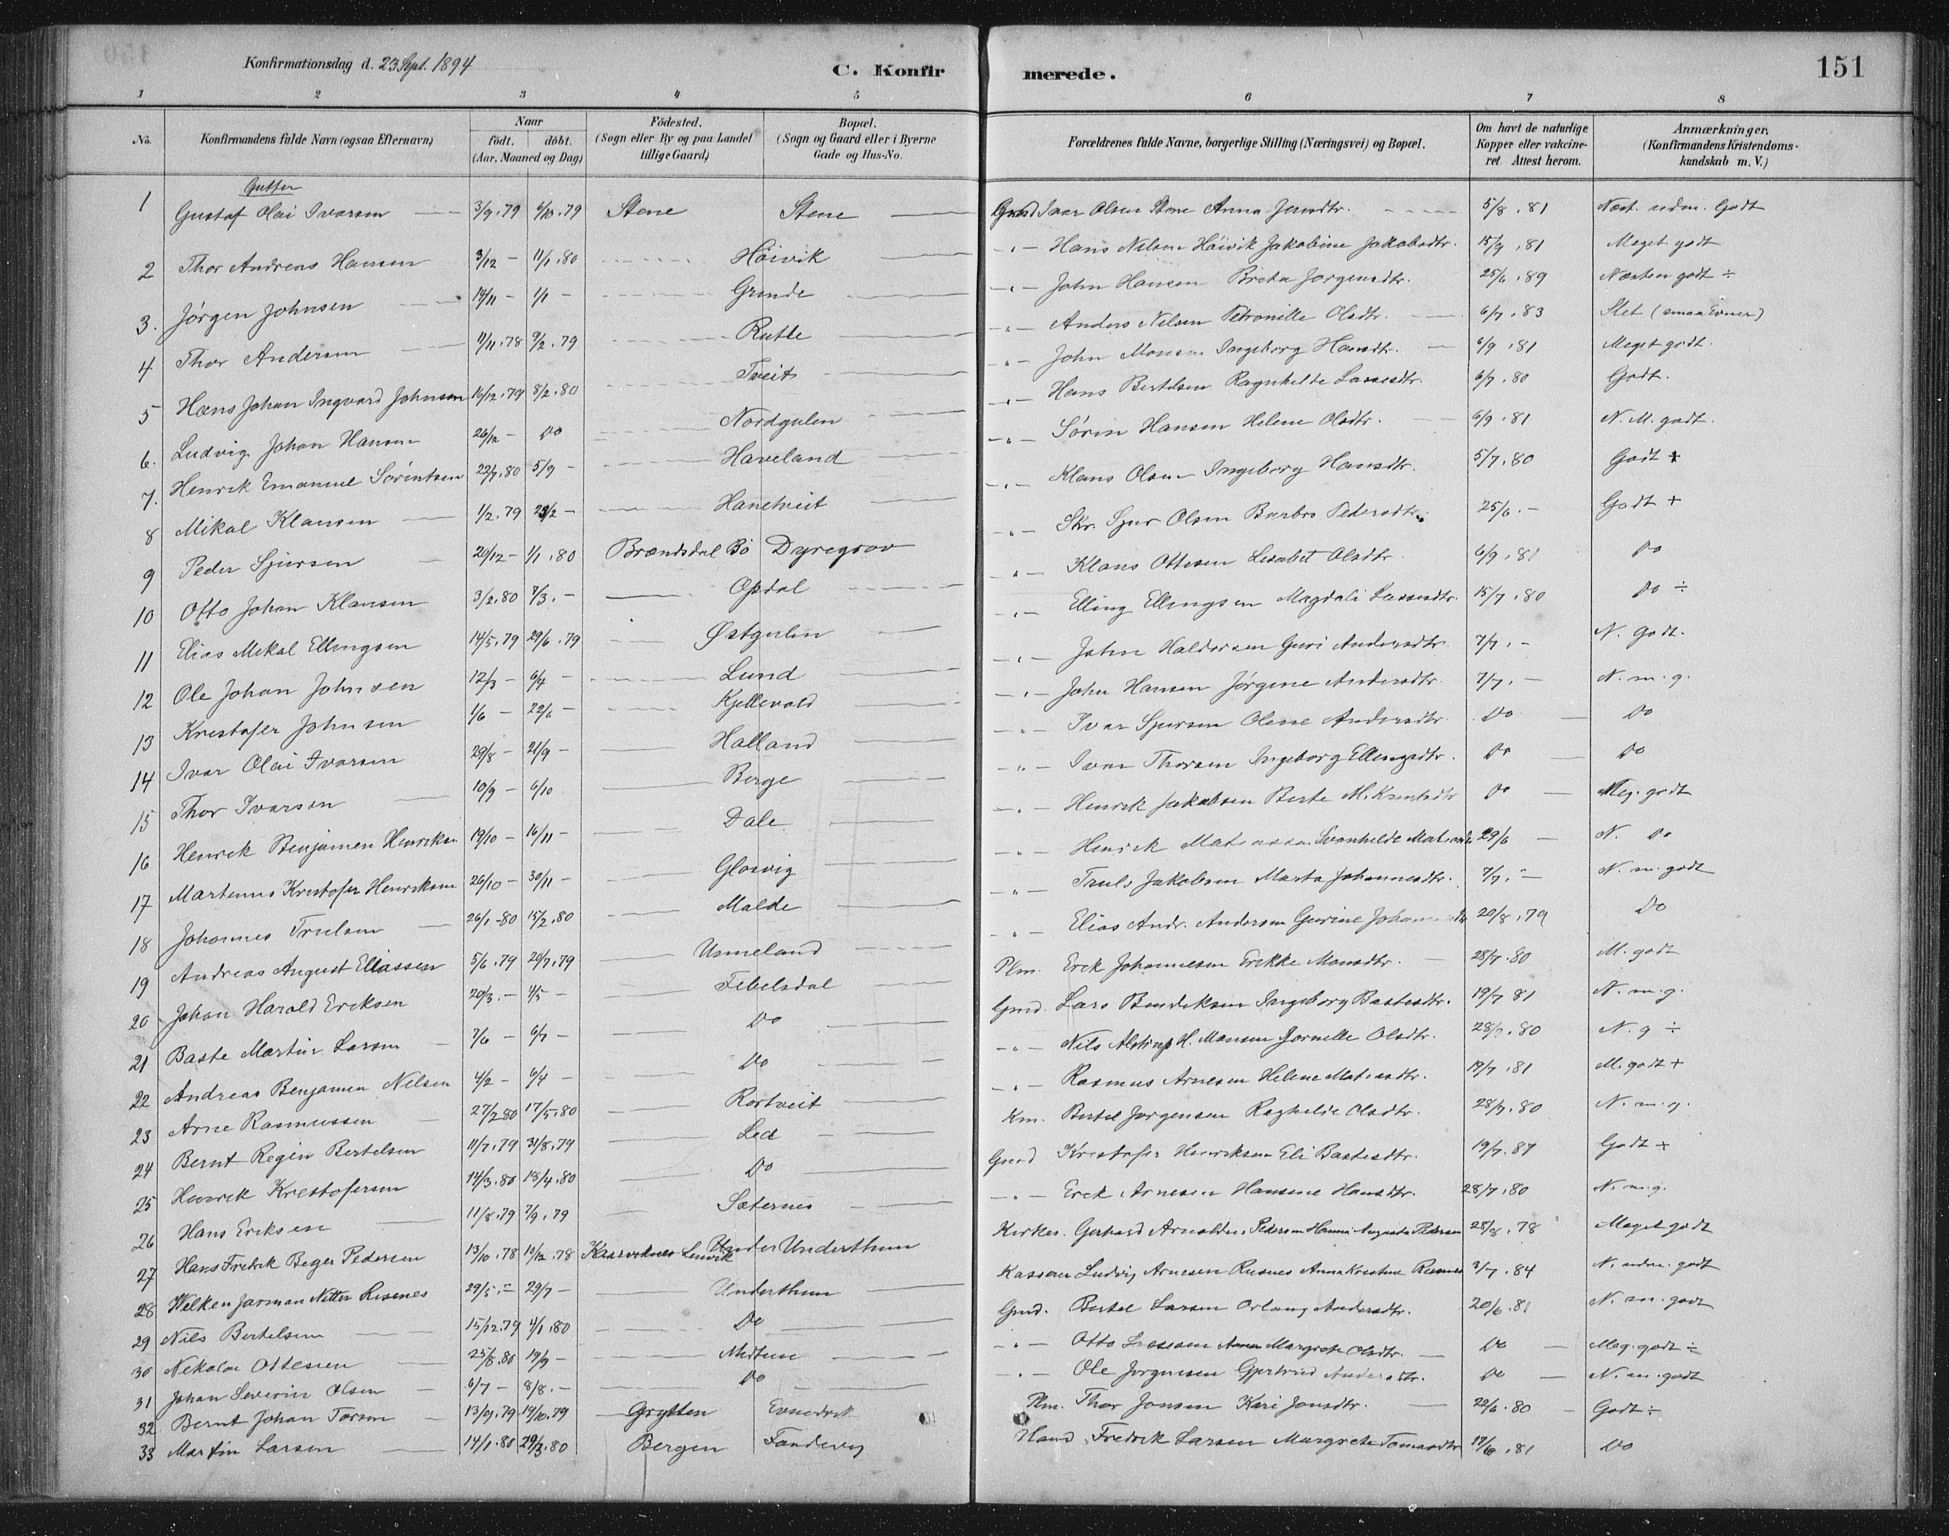 Konfirmationsdag d. 23 Sept. 1894
C. Konfirmerede.
151
1 2 3 4 5 6 7 8
No. Konfirmandens fulde Navn (ogsaa Efternavn) Naar födt. döbt. (Aar, Maaned og Dag) Födested. (Sogn eller By og paa Landet tillige Gaard) Bopæl. (Sogn og Gaard eller i Byerne Gade og Hus-No. Forældrenes fulde Navne, borgerlige Stilling (Næringsvei) og Bopæl. Om havt de naturlige Kopper eller vakcineret. Attest herom. Anmærkninger, (Konfirmandens Kristendomskundskab m. V.)
Gutter
1 Gustaf Olai Ivarsen 3/9.79 6/10.79 Stene Stene Gmd Ivar Olsen Stene Anna Jensdtr. 5/8.81 Næst. udm. Godt
2 Thor Andreas Hansen 3/12 – 11/1.80 Höivik Hans Nilsen Höivik Jakobine Jakobsdtr. 15/9.81 Meget godt
3. Jørgen Johnsen 14/11 – 1/1 – Grinde John Hansen Brita Jørgensdtr. 25/6.89 Næsten godt ÷
4 Thor Andersen 4/11.78 9/2.79 Rutle Anders Nilsen Petronille Olsdtr. 6/7.83 Slet (smaa Evner)
5 Hans Johan Ingvard Johnsen 16/12.79 8/2.80 Tveit John Monsen Ingeborg Hansdtr. 6/9.81 Meget godt.
6. Ludvig Johan Hansen 26/12 – Do Nordgulen Hans Bertelsen Ragnhilde Lassesdtr. 6/7.80 Godt.
7. Henrik Emanuel Sørintsen 22/7.80 5/9 – Haveland Sørin Hansen Helene Olsdtr. 6/9.81 N. M. godt.
8 Mikal Klausen 1/2.79 23/2 – Hanetveit Klaus Olsen Ingeborg Hansdtr. 5/7.80 Godt +
9 Peder Sjursen 20/12 – 1/1.80 Brændsdal Bö Dyregrov Skr. Sjur Olsen Barbro Pedersdtr. 25/6. – Godt +
10 Otto Johan Klausen 3/2.80 7/3. – Opdal Klaus Ottesen Lisabet Olsdtr. 6/9.81 Do
11 Elias Mikal Ellingsen 14/5.79 29/6.79 Østgulen Elling Ellingsen Magdali Lassesdtr. 15/7.80 Do ÷
12 Ole Johan Johnsen 12/3 – 6/4 – Lund John Haldorsen Guri Andersdtr. 7/7. – N. Godt.
13 Kristofer Johnsen 1/6 – 22/6 – Kjellevold John Hansen Jørgine Andersdtr. 7/7. – N. m. g.
14 Ivar Olai Ivarsen 29/8 – 21/9 – Halland Ivar Sjursen Olesse Andersdtr. Do Do
15 Thor Ivarsen 10/9 – 6/10 Berge Ivar Thorsen Ingeborg Ellingsdtr. Do Do
16 Henrik Benjamin Henriksen 19/10 – 16/11 – Dale Henrik Jakobsen Berte M. Do Meg. godt
17 Martinus Kristofer Henriksen 26/10 – 30/11 – Glosvig Henrik Svanhilde 29/6 – N. Do
18 Johannes Trulsen 26/1-80 15/2.80 Molde Truls Jakobsen Marta Johannesdtr. 7/7. – N. m. godt
19 Andreas August Eliassen 5/6.79 20/7.79 Usmeland Elias Andr. Andersen Gurine 20/8.79 Do
20 Johan Harald Eriksen 20/3. – 4/5 – Febelsdal Plm. Erik Johannesen Erikke Monsdtr. 28/7.80 M. godt
21 Baste Martin Larsen 7/6 – 6/7 – Do Gmd. Lars Bendiksen Ingeborg Bastesdtr. 19/7 81 N. m. g.
22 Andreas Benjamin Nilsen 4/2 – 6/4 – Do Nils Alstrup H. Monsen Olsdtr. 28/7.80 N. g ÷
23 Arne Rasmussen 27/2 80 17/5.80 Rortveit Rasmus Arnesen Helene Matiasdtr. 19/7.81 M. godt +
24 Bernt Regin Bertelsen 11/7.79 31/8.79 Led Km. Bertel Jørgensen Raghilde Olsdtr. 28/7.80 N. m. g.
25 Henrik Kristofersen 14/3.80 18/4.80 Do Gmd Kristofer Henriksen Eli Bastesdtr. 19/7.81 Godt +
26 Hans Eriksen 11/8.79 7/9.79 Sæternes Erik Arnesen Hansine Hansdtr. 28/7.80 N. m. g.
27 Hans Fredrik Beger Pedersen 13/10.78 10/12.78 Lervik Underthun Kirkes. Gerhard Arnoldus Pedersen Hanna Augusta Pedersen 28/8.78 Meget godt
28 Wilken Jarman Nitter Risenes 29/5. – 29/7 – Underthun Kasserer Ludvig Arnesen Risnes Anna Kristine Risnes 3/7.84 N. udm. godt
29 Nils Bertelsen 15/12.79 4/1.80 Do Gmd. Bertel Larsen Orlaug Andersdtr. 20/6.81 N. m. godt
30 Nikolai Ottesen 25/8.80 19/9 – Midtun Otto Anna Margrete Olsdtr. Do Meg. godt ÷
31 Johan Severin Olsen 6/7 – 8/8. – Do Ole Jørgensen Gjertrud Andersdtr. Do N. m. godt
32 Bernt Johan Torsen 13/9.79 19/10.79 Grytten Plm. Thor Jonsen Kari Jonsdtr. 22/6.80 – Godt ÷
33 Martin Larsen 14/1.80 29/3.80 Bergen Fredrik Larsen Margrete Tomasdtr. Do